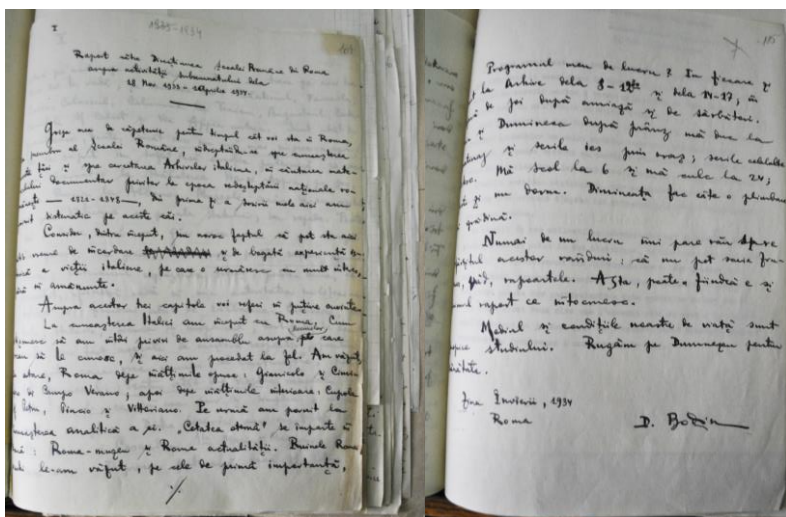 I
1933-1934
Raport către Direcțiunea Școalei Române din Roma
asupra activității subsemnatului dela
28 Nov. 1933 - 1 Aprilie 1934.
Grija mea de căpetenie pentru timpul cât voi sta în Roma,
al Școalei Române, îndreptându-se spre cunoașterea
și spre cercetarea Arhivelor italiene, în căutarea
documentar privitor la epoca redeșteptării naționale
— 1821-1848 —, din prima zi a sosirii mele aici am
sistematic pe aceste căi.
Consider, dintru început, un noroc faptul că pot sta aici
vreme de încordare și de bogată experiență
a vieții italiene, pe care o urmăresc cu mult interes,
și amănunte.
Asupra acestor trei capitole voi referi în puține cuvinte.
La cunoașterea Italiei am început cu Roma. Cum
să am întâi priviri de ansamblu asupra locurilor pe care
să le cunosc, și aici am procedat la fel. Am văzut,
Roma depe înălțimile opuse: Gianicolo și
Campo Verano; apoi depe înălțimile interioare: Cupola
Petru, Pincio și Vittoriano. Pe urmă am pornit la
cunoașterea analitică a ei. „Cetatea eternă” se împarte în
: Roma-muzeu și Roma actualității. Ruinele Romei,
le-am văzut, pe cele de primă importanță,
./.
Programul meu de lucru? În fiecare zi
la Arhive dela 8-12 și dela 14-17, în
de joi după amiază și de sărbători.
și Dumineca după prânz mă duc la
și serile ies prin oraș; serile celelalte
Mă scol la 6 și mă culc la 24;
și nu dorm. Dimineața fac câte o plimbare
grădină.
Numai de un lucru îmi pare rău spre
acestor rânduri: că nu pot scrie
rapoartele. Asta, poate, fiindcă e și
raport ce întocmesc.
Mediul și condițiile noastre de viață sunt
studiului. Rugăm pe Dumnezeu pentru
Ziua Învierii, 1934
Roma
D. Bodin